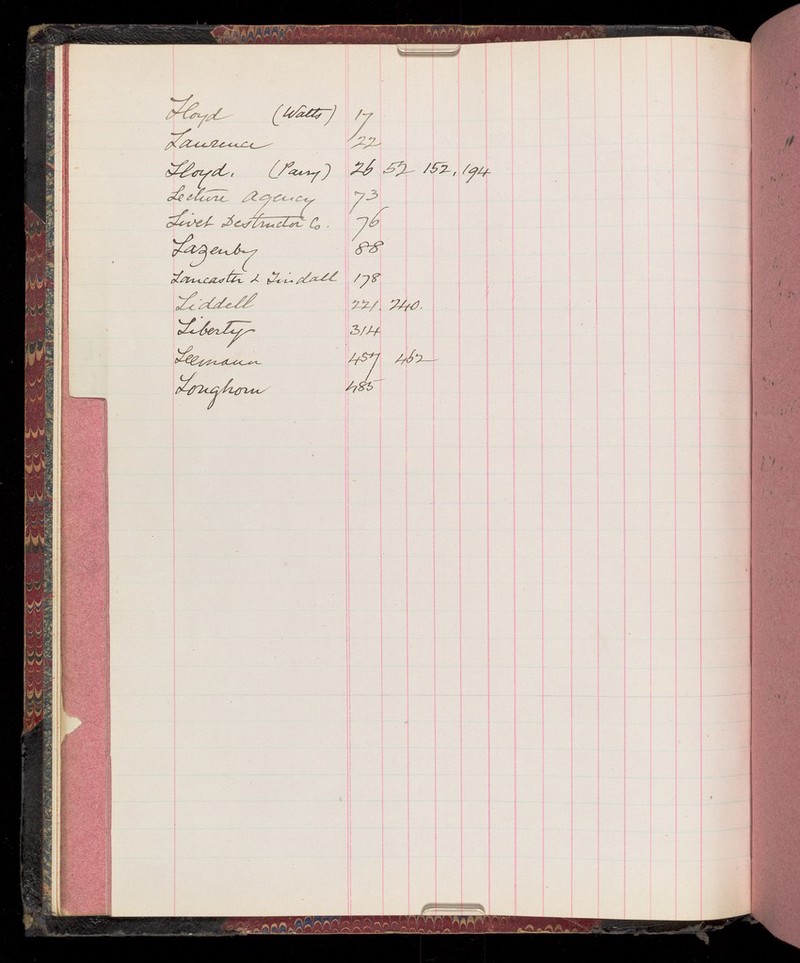 Lloyd (Watts) 17
Laurence 22
Lloyd. (Parry) 26 52 152, 194
Lecture Agency 73
Livet Destructor Co. 76
Lazenby 88
Lancaster & Tindall 178
Liddell 221. 240.
Liberty 314
Leemann 457 462
Longhorn 485